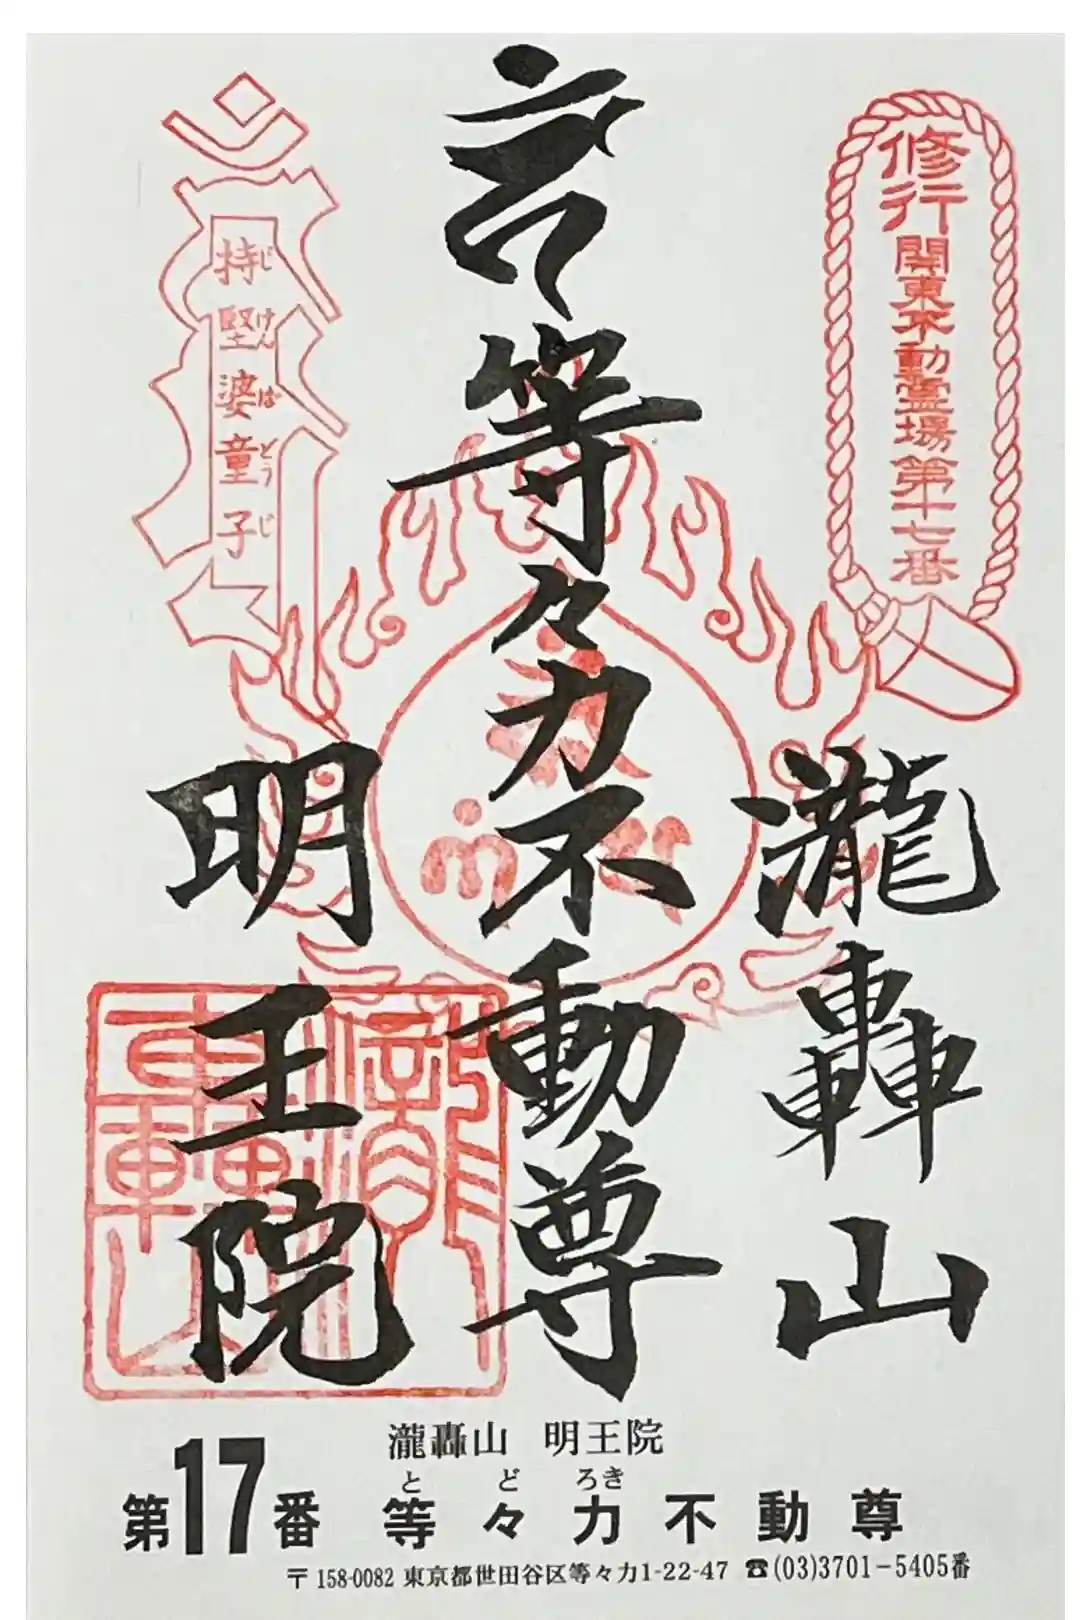 修行
関東不動霊場第十七番
持堅婆童子
じけんばどうじ
瀧轟山
等々力不動尊
明王院
瀧轟山
瀧轟山 明王院
とどろき
第17番 等々力不動尊
〒158-0082 東京都世田谷区等々力1-22-47 ☎(03)3701-5405番